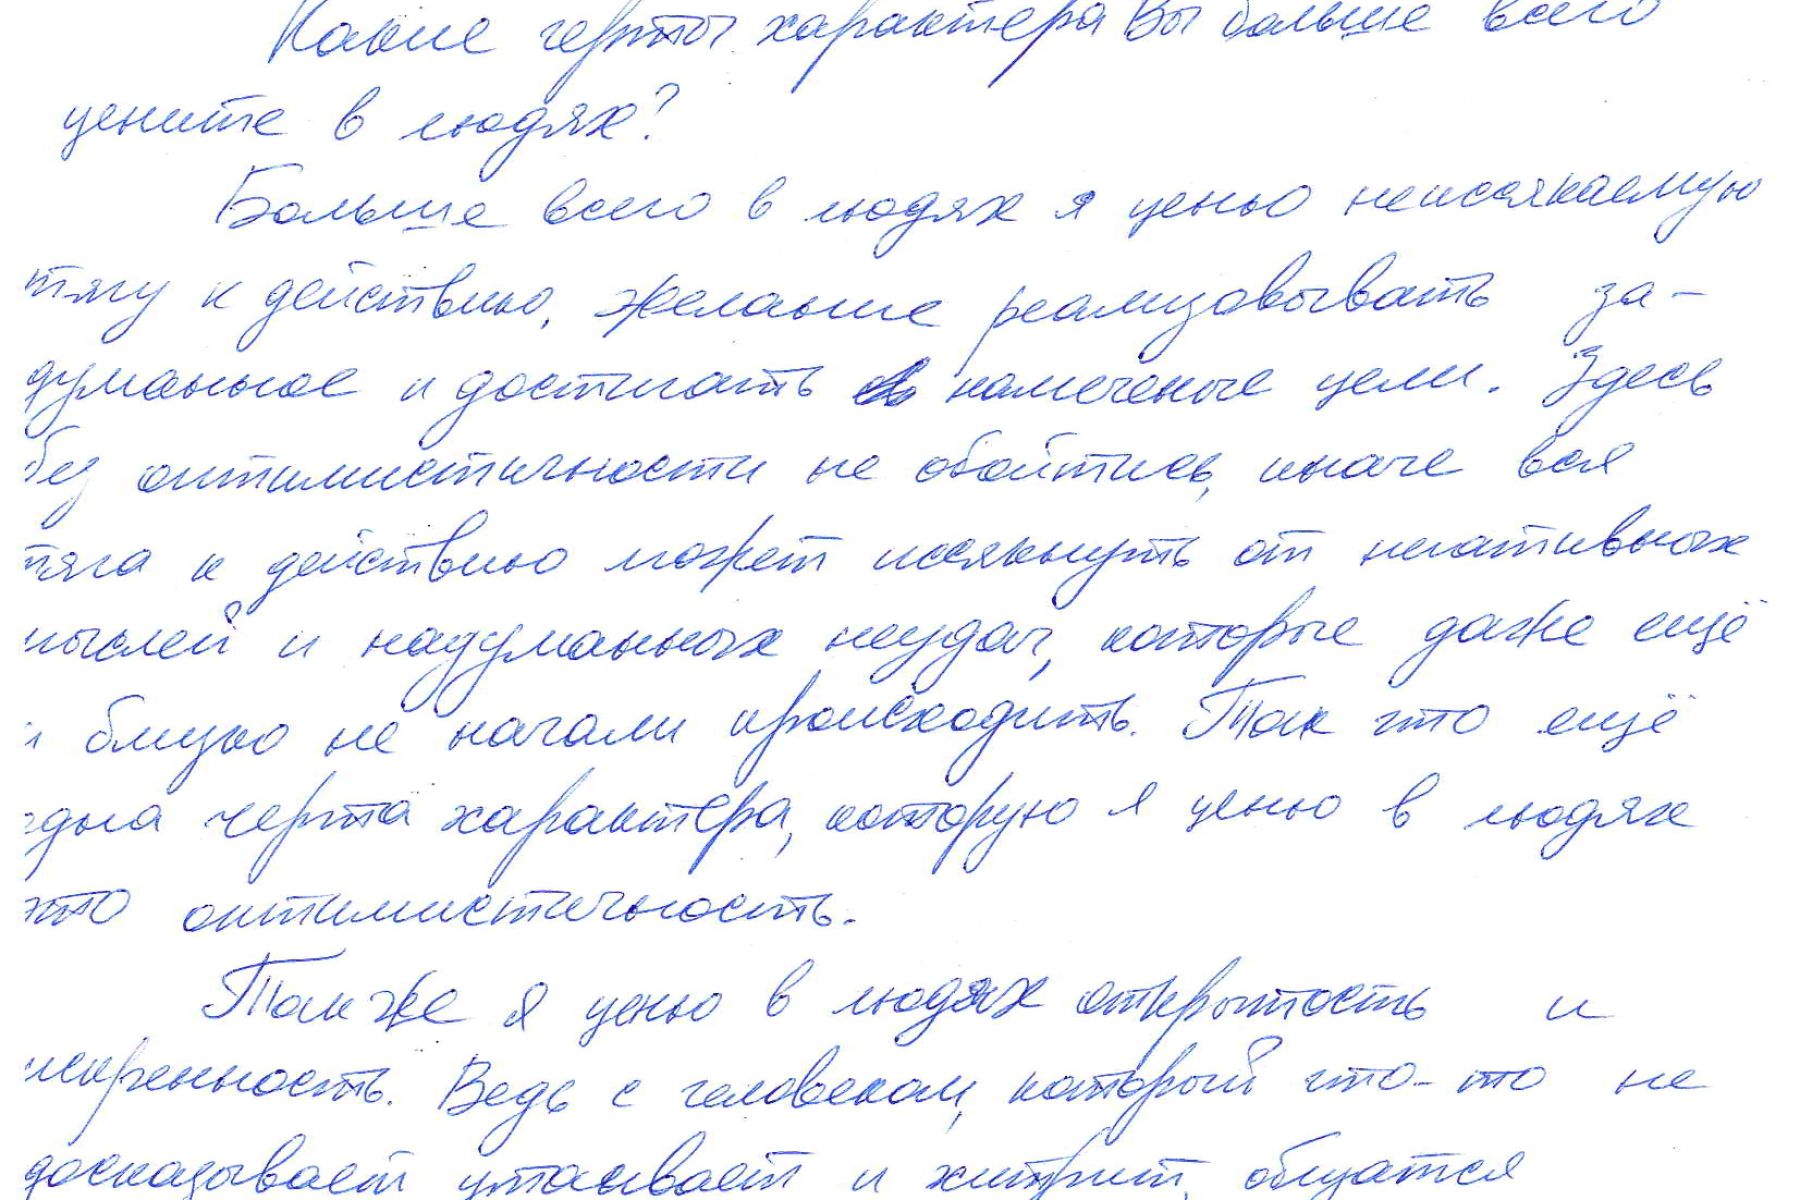 Какие черты характера Вы больше всего
цените в людях?
Больше всего в людях я ценю неиссякаемую
тягу к действию, желание реализовывать за-
думанное и достигать намеченые цели. Здесь
без оптимистичности не обойтись, иначе вся
тяга к действию может иссякнуть от негативных
мыслей и надуманных неудач, которые даже ещё
и близко не начали происходить. Так что ещё
одна черта характера, которую я ценю в людях
это оптимистичность.
Также я ценю в людях открытость и
искренность. Ведь с человеком, который что-то не
досказывает утаивает и хитрит, общатся